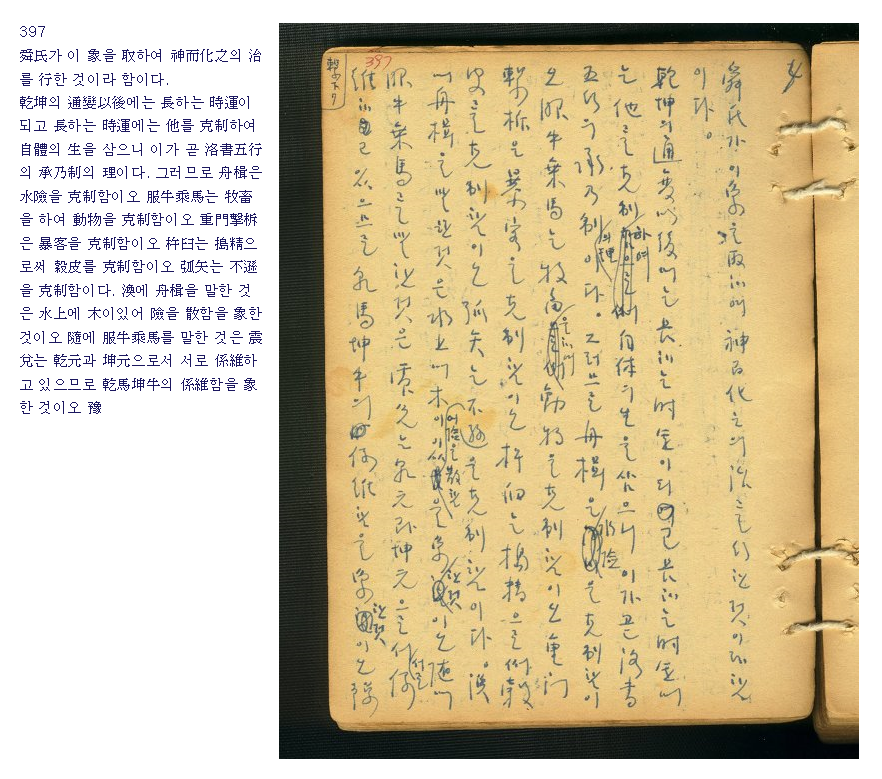 397
舜氏가 이 象을 取하여 神而化之의 治
를 行한 것이라 함이다.
乾坤의 通變以後에는 長하는 時運이
되고 長하는 時運에는 他를 克制하여
自體의 生을 삼으니 이가 곧 洛書五行
의 承乃制의 理이다. 그러므로 舟楫은
水險을 克制함이오 服牛乘馬는 牧畜
을 하여 動物을 克制함이오 重門擊柝
은 暴客을 克制함이오 杵臼는 搗精으
로써 穀皮를 克制함이오 弧矢는 不遜
을 克制함이다. 渙에 舟楫을 말한 것
은 水上에 木이있어 險을 散함을 象한
것이오 隨에 服牛乘馬를 말한 것은 震
兌는 乾元과 坤元으로서 서로 係維하
고 있으므로 乾馬坤牛의 係維함을 象
한 것이오 豫
397
舜氏가 이 象을 取하여 神而化之의 治를 行한 것이라 함
이다.
乾坤의 通變以後에는 長하는 時運이 되고 長하는 時運에
는 他를 克制하여 自体의 生을 삼으니 이가 곧 洛書
五行의 承乃制의 理이다. 그러므로 舟楫은 水險을 克制함이
오 服牛乘馬는 牧畜을 하여 動物을 克制함이오 重門
擊柝은 暴客을 克制함이오 杵臼는 搗精으로써 穀
皮를 克制함이오 弧矢는 不遜을 克制함이다. 渙
에 舟楫을 말한 것은 水上에 木이있어 險을 散함을 象한 것이오 隨에
服牛乘馬를 말한 것은 震兌는 乾元과 坤元으로서 서로 係
維하고 있으므로 乾馬坤牛의 係維함을 象한 것이오 豫